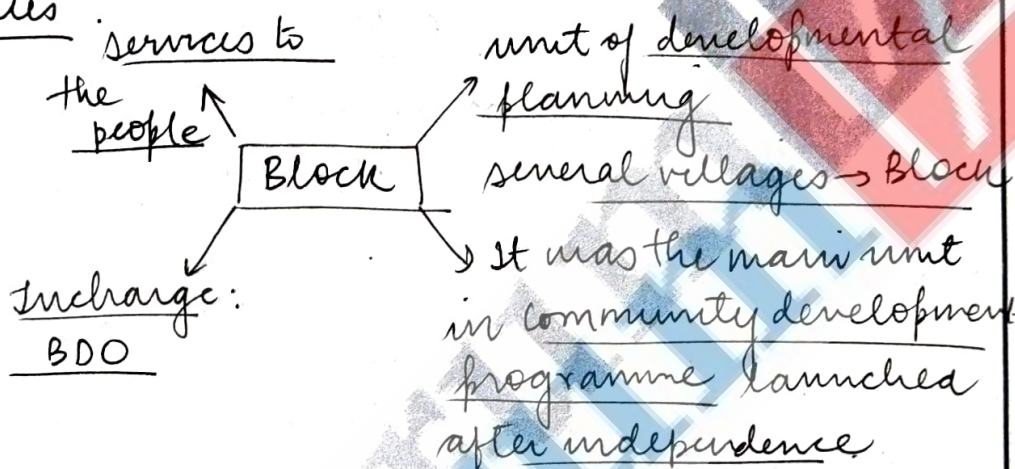 services to
the
people
unit of developmental
planning
several villages → Block
Block
It was the main unit
in community development
programme launched
after independence
Incharge:
BDO